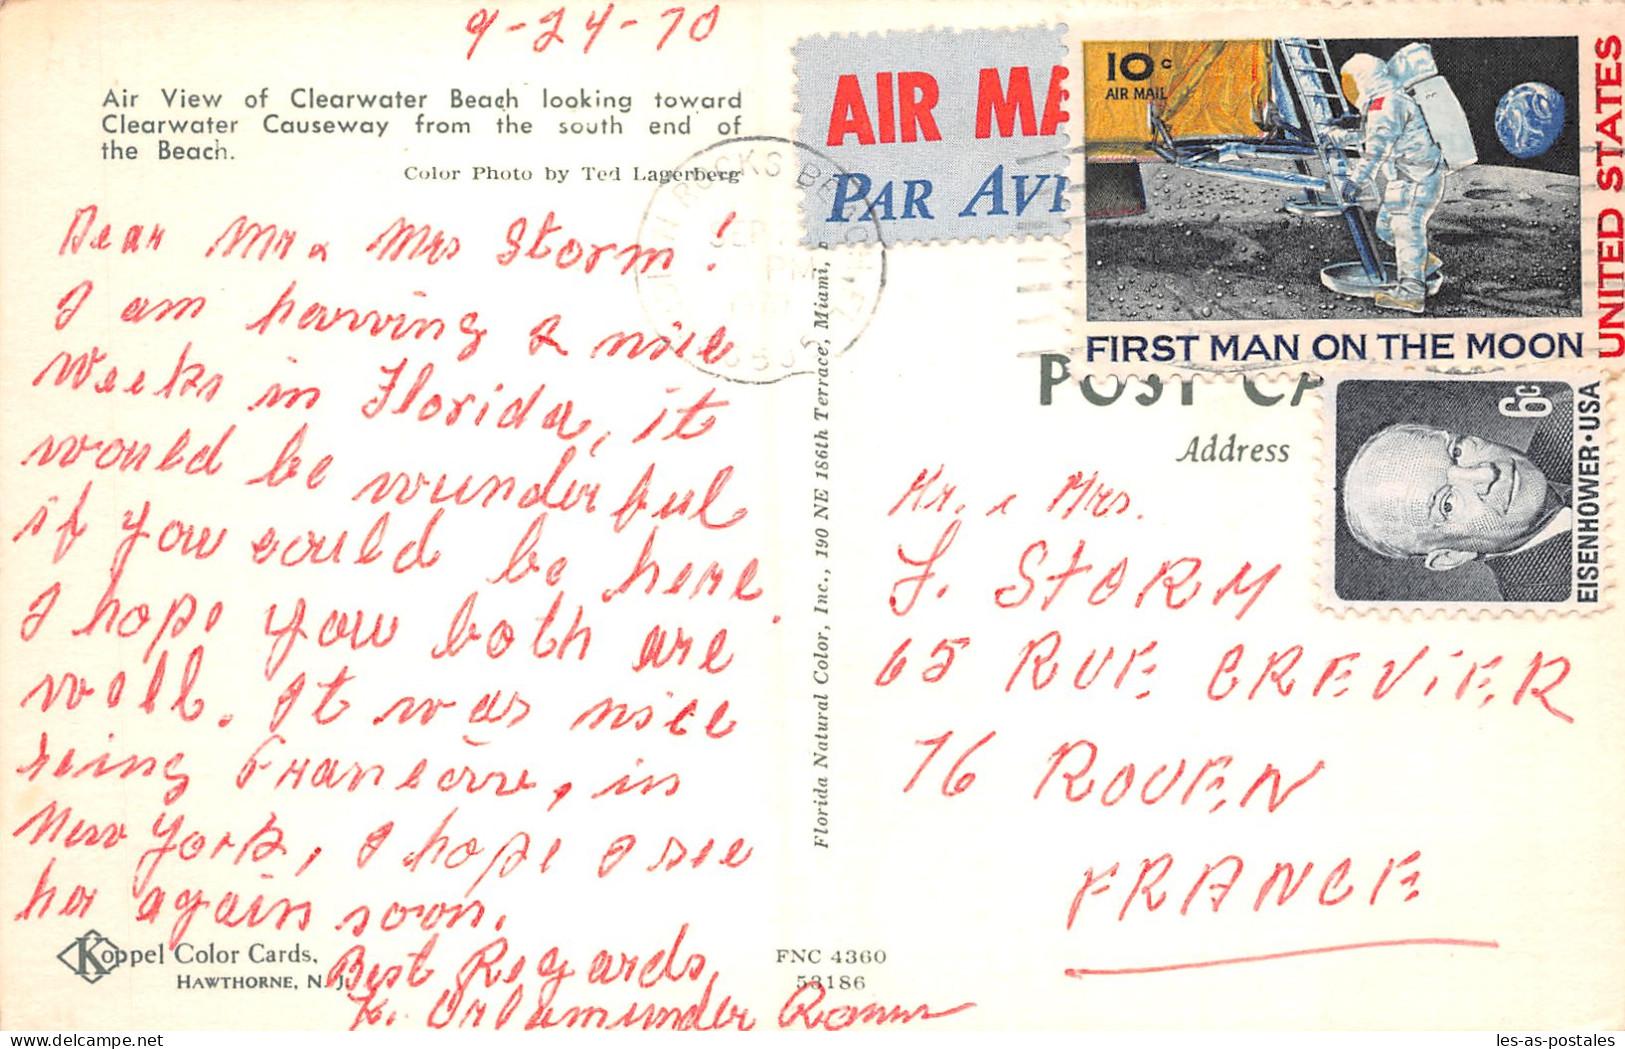 9-24-70
Air View of Clearwater Beach looking toward
Clearwater Causeway from the south end of
the Beach.
Color Photo by Ted Lagerberg
Dear Mr & Mrs Storm!
I am having 2 nice
weeks in Florida, it
would be wunderful
if you could be here.
I hope you both are
well. It was nice
seing Francoise, in
New York, I hope I see
her again soon.
Best Regards,
K. Orlamunder
Koppel Color Cards,
HAWTHORNE, N. J.
FNC 4360
53186
Florida Natural Color, Inc., 190 NE 186th Terrace, Miami,
AIR MA
PAR AVI
10c
AIR MAIL
UNITED STATES
FIRST MAN ON THE MOON
6c
EISENHOWER·USA
SEP
PM
POST CA
Address
Mr. & Mrs.
F. STORM
65 RUE CREVIER
76 ROUEN
FRANCE
les-as-postales